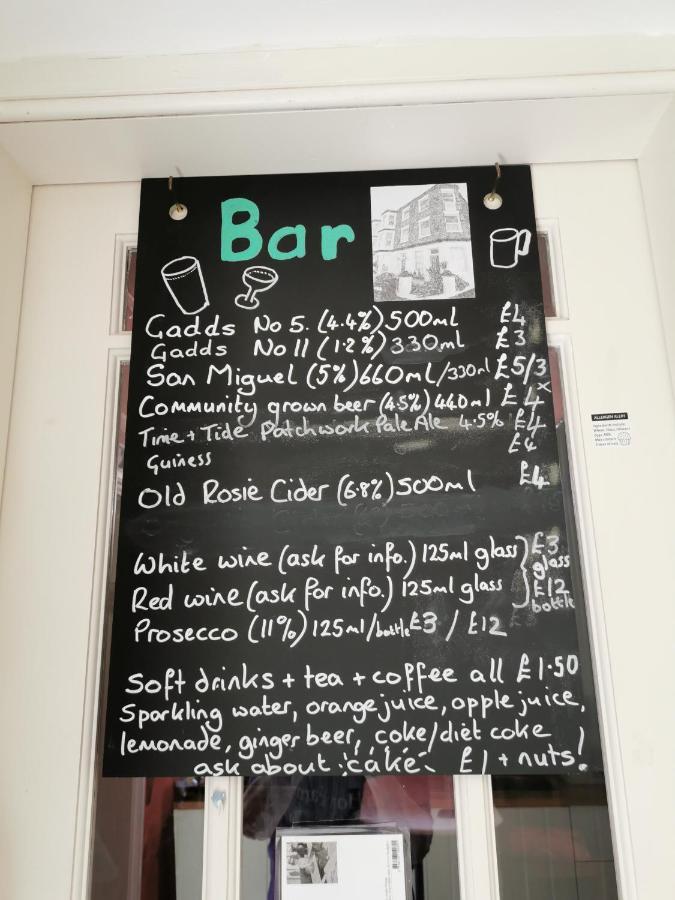 Bar
Gadds No 5. (4.4%) 500ml £4
Gadds No 11 (1.2%) 330ml £3
San Miguel (5%) 660ml/330ml £5/3
Community grown beer (4.5%) 440ml £4
Time + Tide Patchwork Pale Ale 4.5% £4
Guiness £4
Old Rosie Cider (6.8%) 500ml £4
White wine (ask for info.) 125ml glass } £3 glass
Red wine (ask for info.) 125ml glass } £12 bottle
Prosecco (11%) 125ml/bottle £3 / £12
Soft drinks + tea + coffee all £1.50
Sparkling water, orange juice, apple juice,
lemonade, ginger beer, coke/diet coke
ask about cake £1 + nuts!
ALLERGEN ALERT